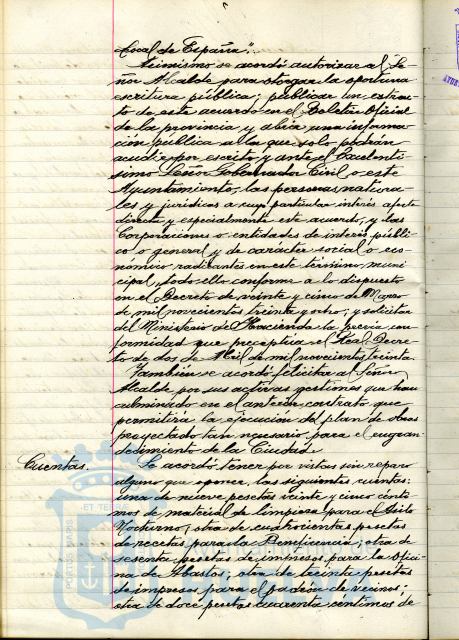 Local de España".
Asimismo se acordó autorizar al Se-
ñor Alcalde para otorgar la oportuna
escritura pública; publicar un extrac-
to de este acuerdo en el Boletín Oficial
de la provincia y abrir una informa-
ción pública a la que solo podrán
acudir por escrito y ante el Excelentí-
simo Señor Gobernador Civil o este
Ayuntamiento, las personas natura-
les y jurídicas a cuyo particular interés afecte
directa y especialmente este acuerdo, y las
Corporaciones o entidades de interés públi-
co o general y de carácter social o eco-
nómico radicantes en este término muni-
cipal, todo ello conforme a lo dispuesto
en el Decreto de veinte y cinco de Marzo
de mil novecientos treinta y ocho; y solicitar
del Ministerio de Hacienda la previa con-
formidad que preceptúa el Real Decre-
to de dos de Abril de mil novecientos treinta.
También se acordó felicitar al Señor
Alcalde por sus activas gestiones que han
culminado en el anterior contrato que
permitirá la ejecución del plan de obras
proyectado tan necesario para el engran-
decimiento de la Ciudad.
Cuentas. Se acordó tener por vistas sin reparo
alguno que oponer, las siguientes cuentas:
una de nueve pesetas veinte y cinco cénti-
mos de material de limpieza para el Asilo
Nocturno; otra de cuatrocientas pesetas
de recetas para la Beneficencia; otra de
sesenta pesetas de impresos para la Ofici-
na de Abastos; otra de treinta pesetas
de impresos para el padrón de vecinos;
otra de doce pesetas cuarenta céntimos de